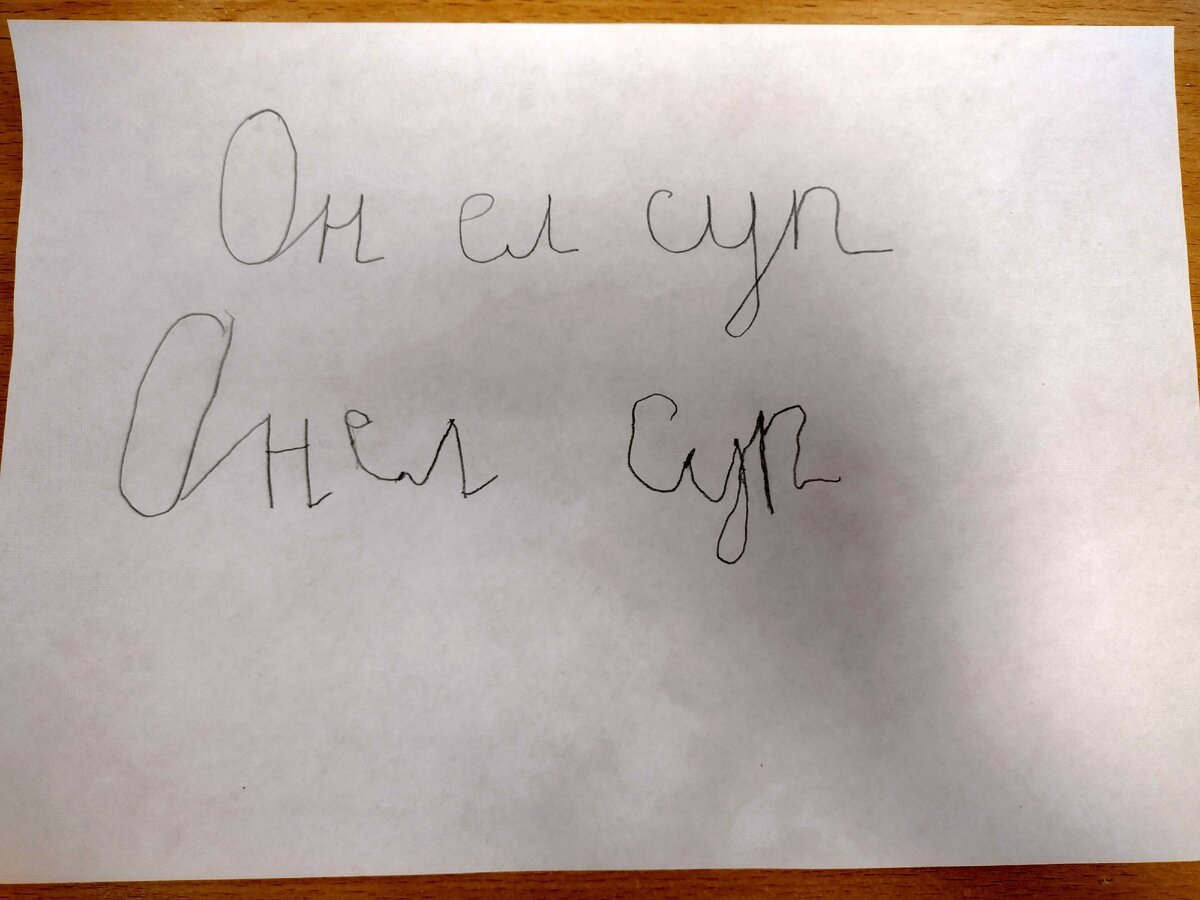 Он ел суп
Он ел суп